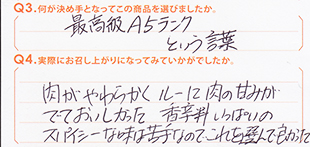 Q3.何が決め手となってこの商品を選びましたか。
最高級A5ランク
という言葉
Q4.実際にお召し上がりになってみていかがでしたか。
肉がやわらかく ルーに肉の甘みが
でておいしかった 香辛料いっぱいの
スパイシーな味は苦手なのでこれを選んで良かった